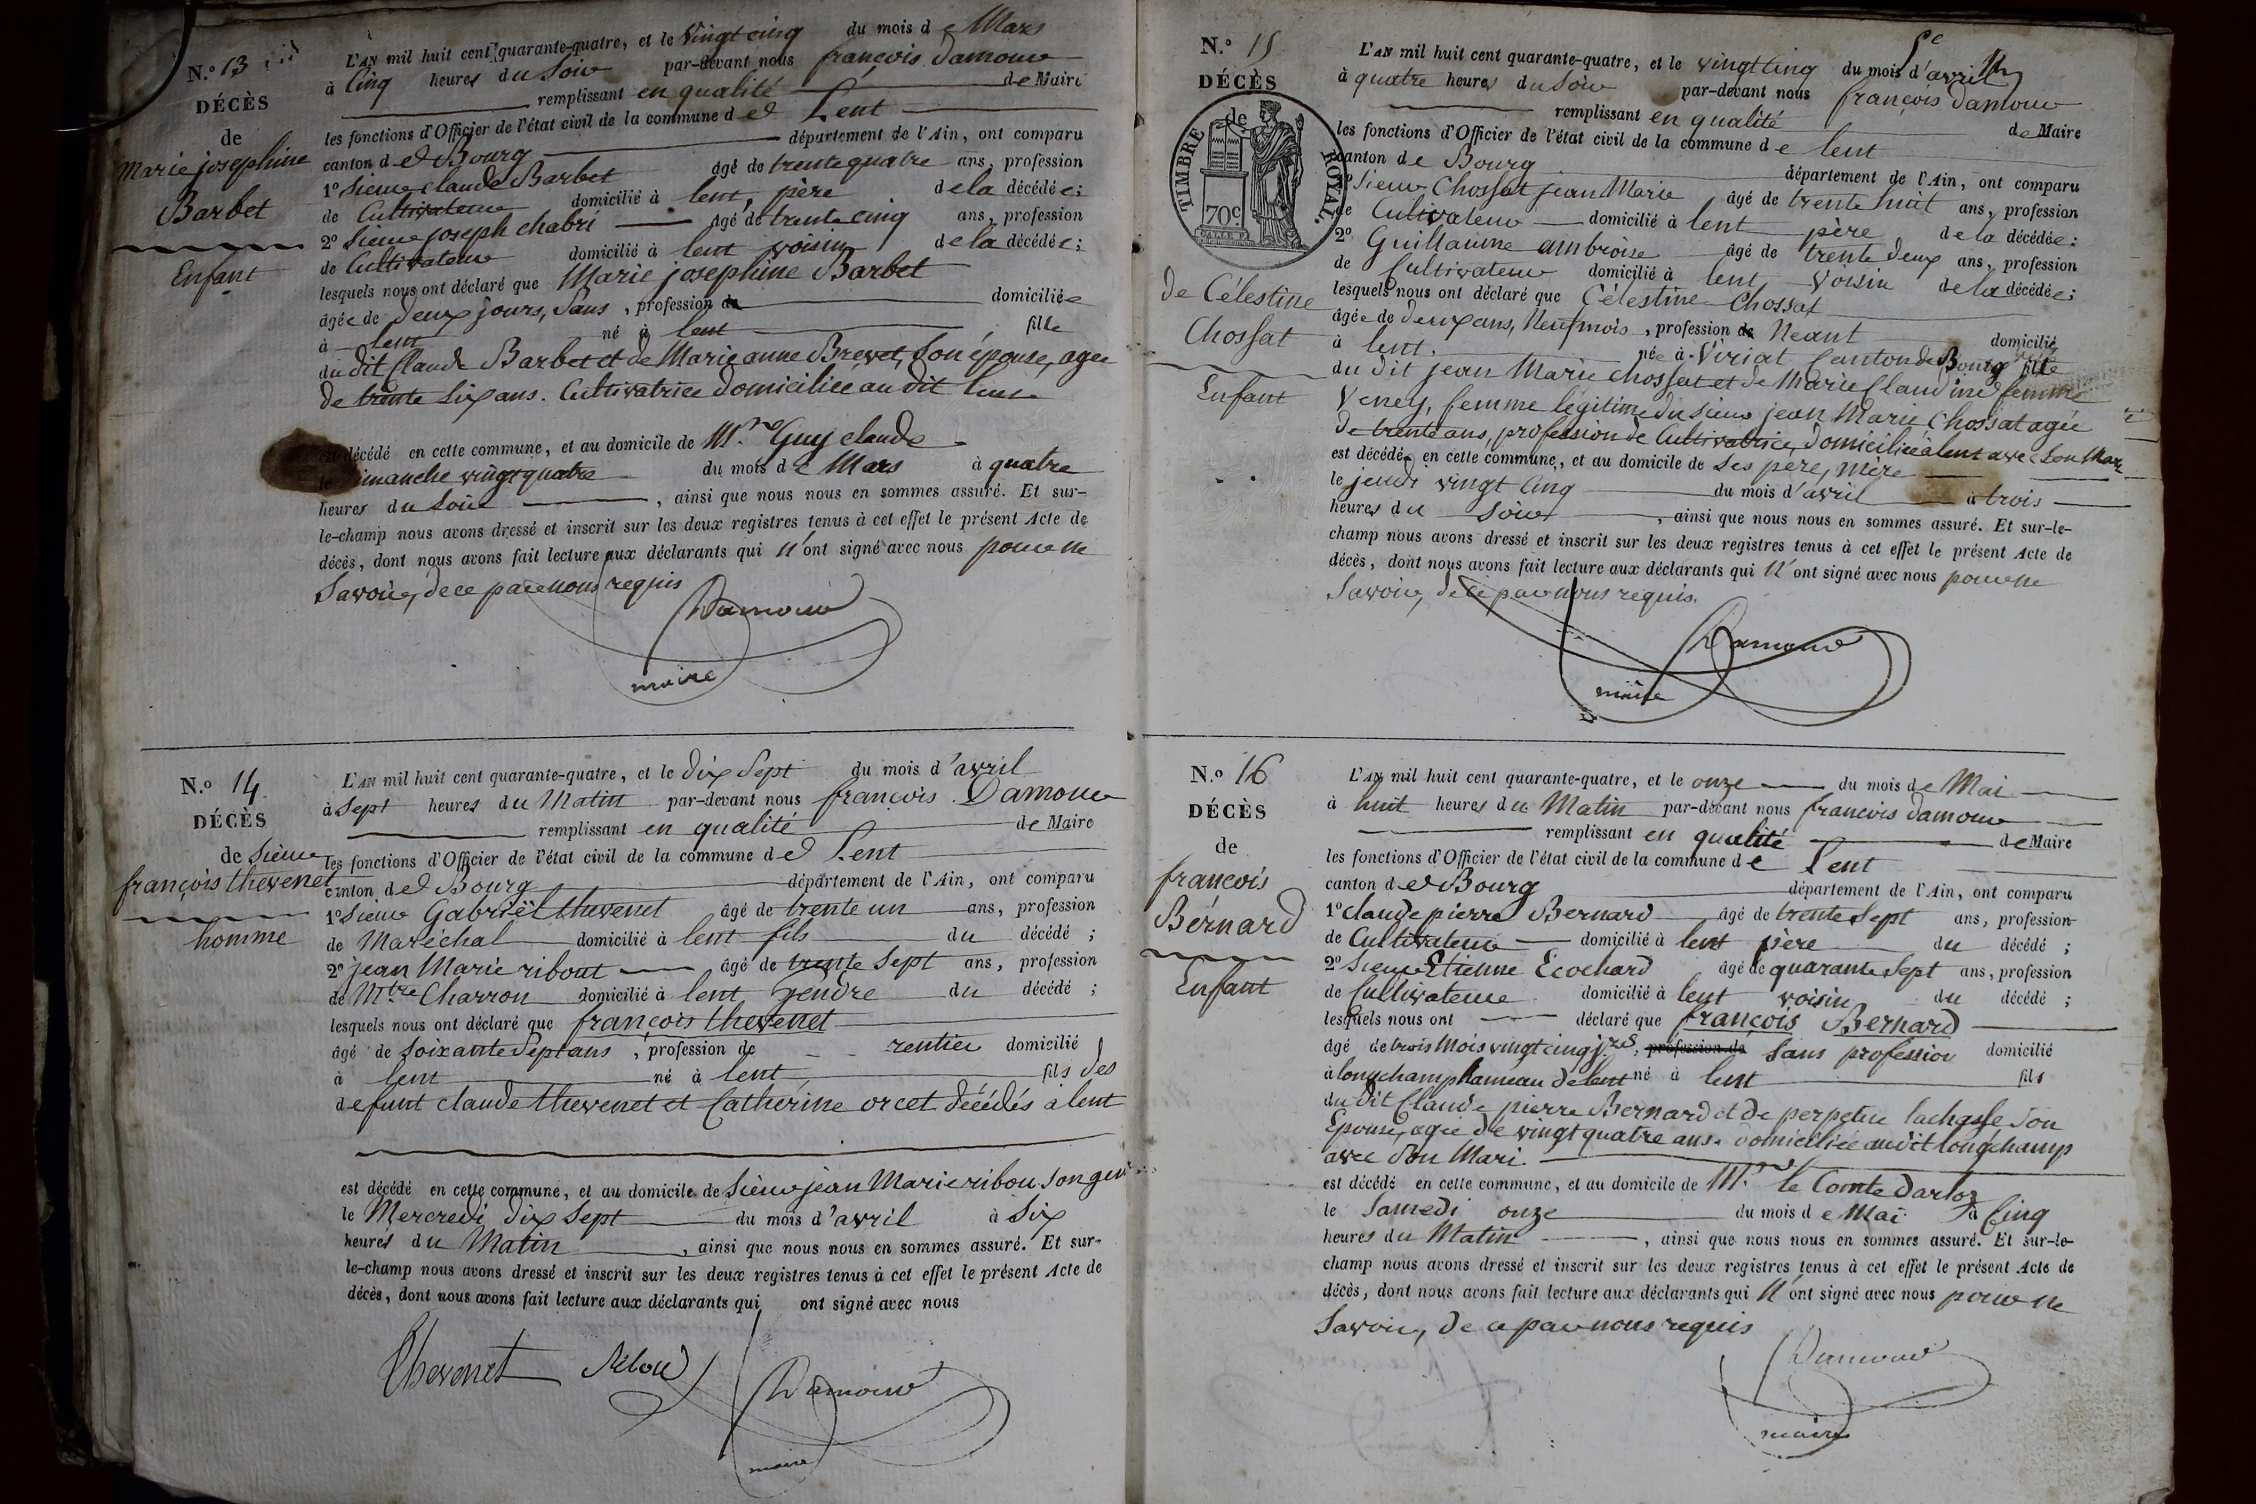 N.° 13
DÉCÈS
de
Marie josephine
Barbet
Enfant
L'AN mil huit cent quarante-quatre, et le vingt cinq du mois de Mars
à Cinq heures du Soir par-devant nous françois damour
remplissant en qualité de Maire
les fonctions d'Officier de l'état civil de la commune de Lent
canton de Bourg département de l'Ain, ont comparu
1° Sieur claude Barbet âgé de trente quatre ans, profession
de Cultivateur domicilié à lent, père de la décédée;
2° Sieur joseph chabri âgé de trente cinq ans, profession
de Cultivateur domicilié à lent voisin de la décédée;
lesquels nous ont déclaré que Marie josephine Barbet
âgée de deux jours, Sans, profession de domiciliée
à lent né à lent fille
du dit Claude Barbet et de Marie anne Brevet, Son épouse, agée
de trente Six ans. Cultivatrice domiciliée au dit lent
est décédé en cette commune, et au domicile de Mr Guy claude
le dimanche vingt quatre du mois de Mars à quatre
heures du Soir, ainsi que nous nous en sommes assuré. Et sur-
le-champ nous avons dressé et inscrit sur les deux registres tenus à cet effet le présent Acte de
décès, dont nous avons fait lecture aux déclarants qui n'ont signé avec nous pour ne
Savoir, de ce par nous requis
Damour
maire
N.° 14
DÉCÈS
de Sieur
françois thevenet
homme
L'AN mil huit cent quarante-quatre, et le dix Sept du mois d'avril
à Sept heures du Matin par-devant nous françois Damour
remplissant en qualité de Maire
les fonctions d'Officier de l'état civil de la commune de Lent
canton de Bourg département de l'Ain, ont comparu
1° Sieur Gabriël thevenet âgé de trente un ans, profession
de Maréchal domicilié à lent fils du décédé;
2° jean Marie ribout âgé de trente Sept ans, profession
de Mtre Charron domicilié à lent gendre du décédé;
lesquels nous ont déclaré que françois thevenet
âgé de soixante Sept ans, profession de rentier domicilié
à lent né à lent fils des
defunt claude thevenet et Catherine orcet décédés à lent
est décédé en cette commune, et au domicile de Sieur jean Marie ribou son gen
le Mercredi dix Sept du mois d'avril à Six
heures du Matin, ainsi que nous nous en sommes assuré. Et sur-
le-champ nous avons dressé et inscrit sur les deux registres tenus à cet effet le présent Acte de
décès, dont nous avons fait lecture aux déclarants qui ont signé avec nous
Thevenet Ribou Damour
maire
N.° 15
DÉCÈS
de
TIMBRE ROYAL.
70c
de Célestine
Chossat
Enfant
L'AN mil huit cent quarante-quatre, et le vingt Cinq du mois d'avril
à quatre heures du Soir par-devant nous françois Damour
remplissant en qualité de Maire
les fonctions d'Officier de l'état civil de la commune de lent
canton de Bourg département de l'Ain, ont comparu
1° Sieur Chossat jean Marie âgé de trente huit ans, profession
de Cultivateur domicilié à lent père de la décédée;
2° Guillaume ambroise âgé de trente deux ans, profession
de Cultivateur domicilié à lent voisin de la décédée;
lesquels nous ont déclaré que Célestine Chossat
âgée de deux ans, Neuf mois, profession de Neant domicilié
à lent. née à Viriat Canton de Bourg fille
du dit jean Marie chossat et de Marie Claudine femme
Veney, femme légitime du Sieur jean Marie Chossat agée
de trente ans, profession de Cultivatrice, domiciliée à lent avec Son Mari
est décédée en cette commune, et au domicile de Ses père, mère
le jeudi vingt Cinq du mois d'avril à trois
heures du Soir, ainsi que nous nous en sommes assuré. Et sur-le-
champ nous avons dressé et inscrit sur les deux registres tenus à cet effet le présent Acte de
décès, dont nous avons fait lecture aux déclarants qui n'ont signé avec nous pour ne
Savoir, de ce par nous requis.
Damour
maire
N.° 16
DÉCÈS
de
francois
Bérnard
Enfant
L'AN mil huit cent quarante-quatre, et le onze du mois de Mai
à huit heures du Matin par-devant nous francois damour
remplissant en qualité de Maire
les fonctions d'Officier de l'état civil de la commune de Lent
canton de Bourg département de l'Ain, ont comparu
1° claude pierre Bernard âgé de trente Sept ans, profession
de Cultivateur domicilié à lent père du décédé;
2° Sieur Etienne Ecochard âgé de quarante Sept ans, profession
de Cultivateur domicilié à lent voisin du décédé;
lesquels nous ont déclaré que françois Bernard
âgé de trois Mois vingt cinq jres, profession de Sans profession domicilié
à longchamp hameau de lent né à lent fils
du dit Claude pierre Bernard et de perpetue lachasse Son
Epouse, agée de vingt quatre ans. domiciliée audit longchamp
avec Son Mari
est décédé en cette commune, et au domicile de Mr le Comte Darloz
le Samedi onze du mois de Mai à Cinq
heures du Matin, ainsi que nous nous en sommes assuré. Et sur-le-
champ nous avons dressé et inscrit sur les deux registres tenus à cet effet le présent Acte de
décès, dont nous avons fait lecture aux déclarants qui n'ont signé avec nous pour ne
Savoir, de ce par nous requis
Damour
maire